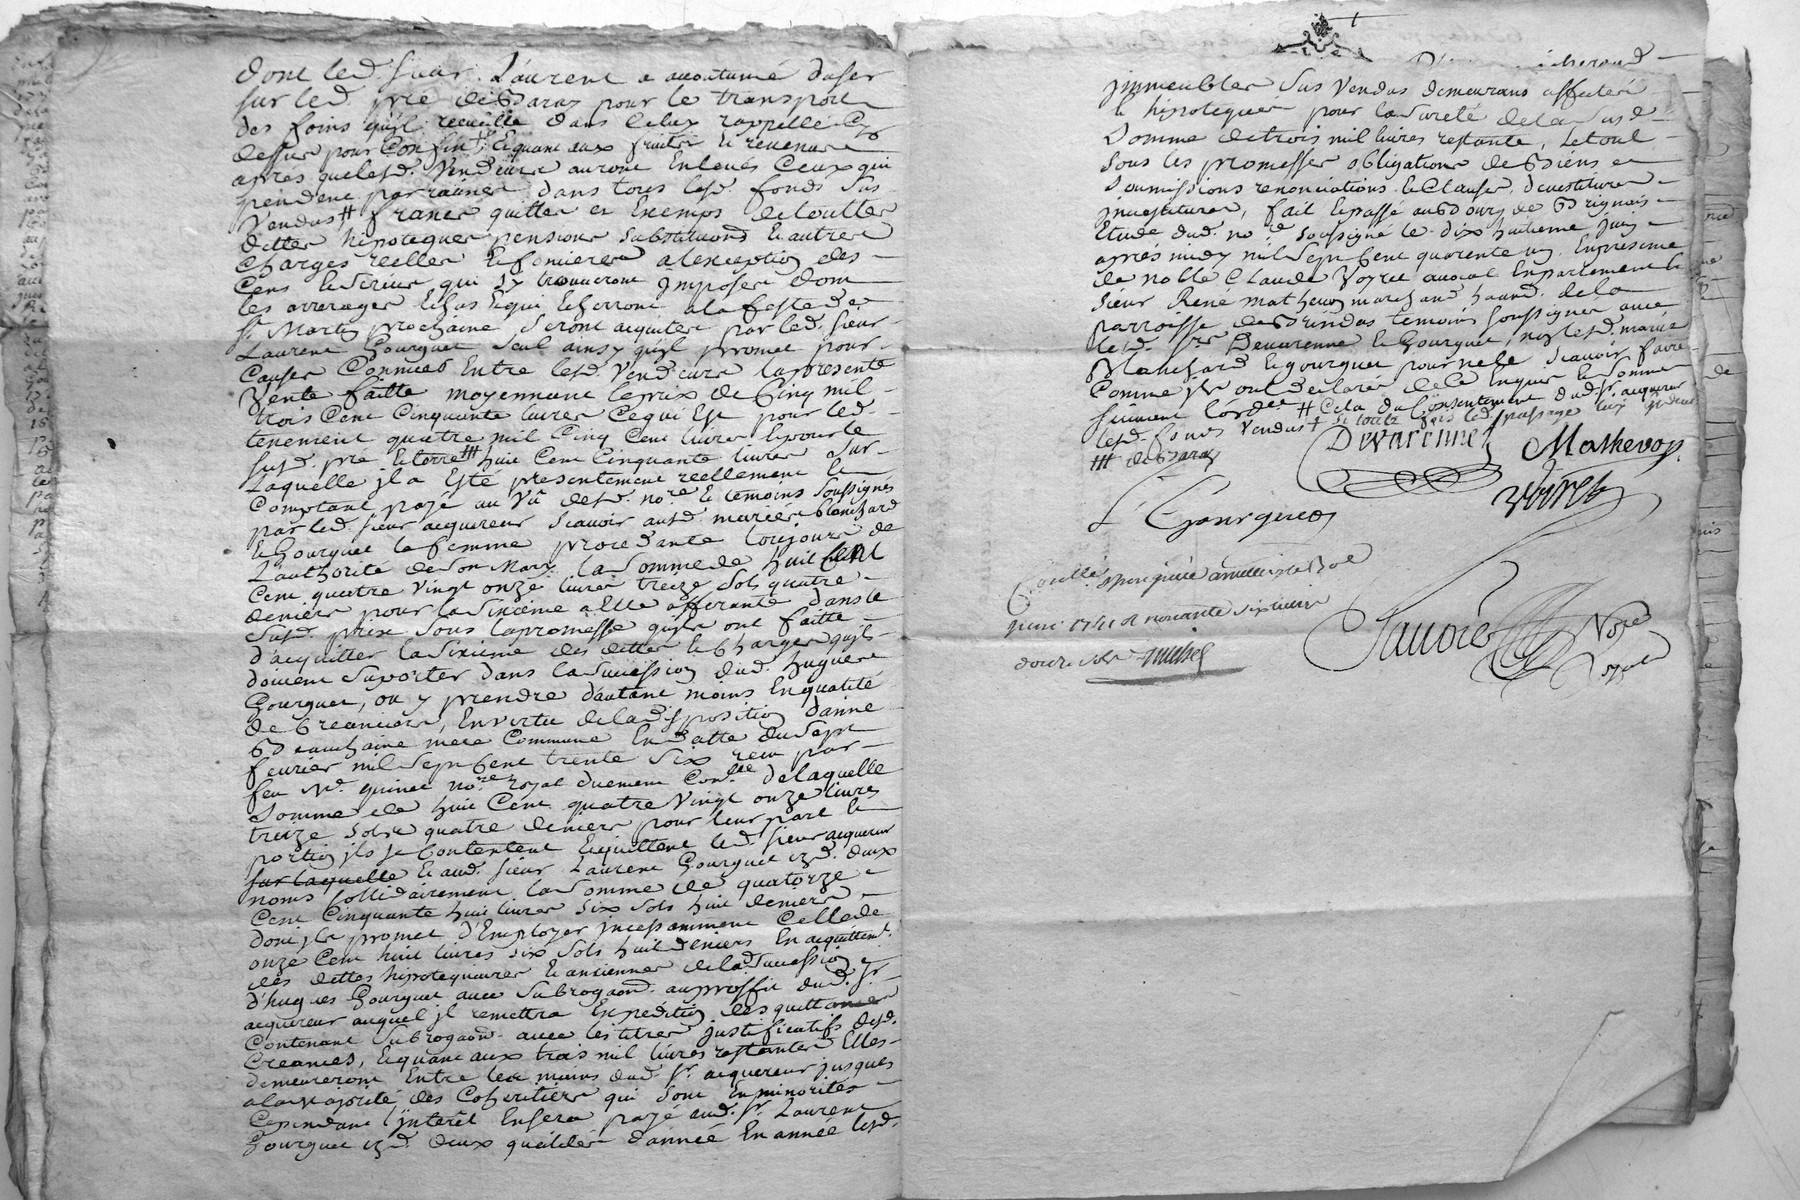 dont led. sieur Laurent a accoutumé duser
sur led. pré de Baraz pour le transport
des foins quyl recueille dans celux rappellé cy
dessus pour confint, et quant aux fruits et revenus
apres que lesd. vendeurs auront enlevés ceux qui
pendent par racines dans tous lesd. fonds sus
vendus # francs quittes et exemps de touttes
dettes hipoteques pensions substituons et autres
charges reelles et foncieres a lexception des
cens et servis qui sy trouveront imposés dont
les arrerages echus et qui echerront a la feste de
st. Martin prochaine seront acquites par led. sieur
Laurent Gourguet seul ainsy quyl promet pour
causes connues entre lesd. vendeurs la presente
vente faitte moyennant le prix de cinq mil
trois cent cinquante livres ce qui est pour led.
tenement quatre mil cinq cent livres et pour le
susd. pré et terre ### huit cent cinquante livres sur
laquelle il a esté presentement reellement et
comptant payé au vû desd. nore. et temoins soussignés
par led. sieur acquereur scavoir ausd. mariés Blanchard
et Gourguet la femme procedante toujours de
l'authorité de son mary la somme de huit cent
cent quatre vingt onze livres treize sols quatre
deniers pour la sixieme a elle afferante dans le
susd. prix sous la promesse quyls ont faitte
d'acquitter la sixieme des dettes et charges quyls
doivent suporter dans la succession dud. hugues
Gourguet, ou y prendre dautant moins en qualité
de creanciers, en vertu de la disposition danne
mere commune en datte du sept
fevrier mil sept cent trente six recu par
feu Me. quinet nore. royal duement conllé. de laquelle
somme de huit cent quatre vingt onze livres
treize sols quatre deniers pour leur part et
portion ils se contentent et quittent led. sieur acquereur
sur laquelle et aud. sieur Laurent Gourguet esd. deux
noms sollidairement la somme de quatorze
cent cinquante huit livres six sols huit deniers
dont il promet d'employer incessamment celle de
onze cent huit livres six sols huit deniers en acquittemt.
des dettes hipotequaires et anciennes de la d. succession
d'hugues Gourguet avec subrogaon. au proffit dud. sr.
acquereur auquel il remettra expedition des quittances
contenant subrogaon. avec les titres justificatifs desd.
creances, et quant aux trois mil livres restantes elles
demeureront entre les mains dud. sr. acquereur jusques
a la majorité des coheritiers qui sont en minorités
cependant l'interêt en sera payé aud. sr. Laurent
Gourguet esd. deux qualités d'année en année lesd.
immeubles sus vendus demeurans affectés
et hipotequés pour la sureté de la susd.
somme de trois mil livres restante, le tout
sous les promesses obligations de biens et
soumissions renonciations et clauses, devestitures
investitures, fait et passé au bourg de Brignais
etude dud. nore. soussigné le dix huitieme juin
apres midy mil sept cent quarente un en presence
de noble Claude Voyret avocat en parlement et
sieur René Mathevon marchand habnt. de la
parroisse de Brindas temoins soussignés avec
lesd. srs. Devarenne et Gourguet, non lesd. mariés
Blanchard et gourguet pour ne le scavoir faire
comme ils ont declaré de ce enquis et sommé
suivant lordce # cela du consentement dud. sr. acquereur
lesd. fonds vendus + si toute fois led. passage luy est deub
### de Baraz
Devarenne Mathevon
L Gourguet Voiret
Conllé a Brignais le
juin 1741 R noirante six livres
douze sols Michel
Sauvoie Nore
Royal